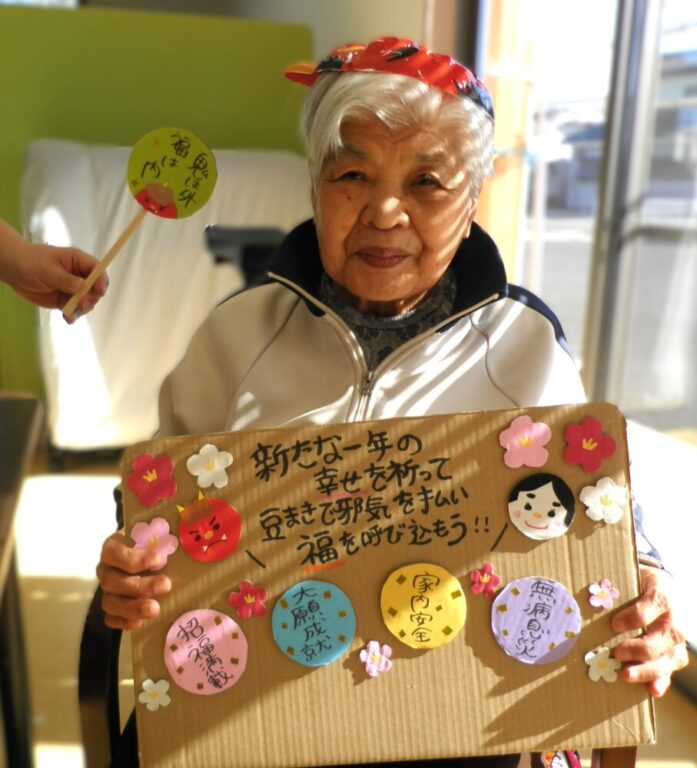 鬼は外
福は内
新たな一年の
幸せを祈って
豆まきで邪気を払い
福を呼び込もう!!
招福満載
大願成就
家内安全
無病息災